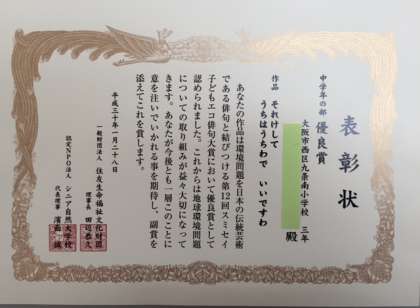 表彰状
中学年の部 優良賞
大阪市西区九条南小学校 三年
殿
作品 それけして
うちはうちわで いいですわ
あなたの作品は環境問題を日本の伝統芸術
である俳句と結びつける第12回スミセイ
子どもエコ俳句大賞において優良賞として
認められました。これからは地球環境問題
についての取り組みが益々大切になって
きます。あなたが今後とも一層このことに
意を注いでいかれる事を期待し、副賞を
添えてこれを賞します。
平成三十年一月二十八日
一般財団法人 住友生命福祉文化財団
理事長 田辺恭久
認定NPO法人 シニア自然大学校
代表理事 濱面誠